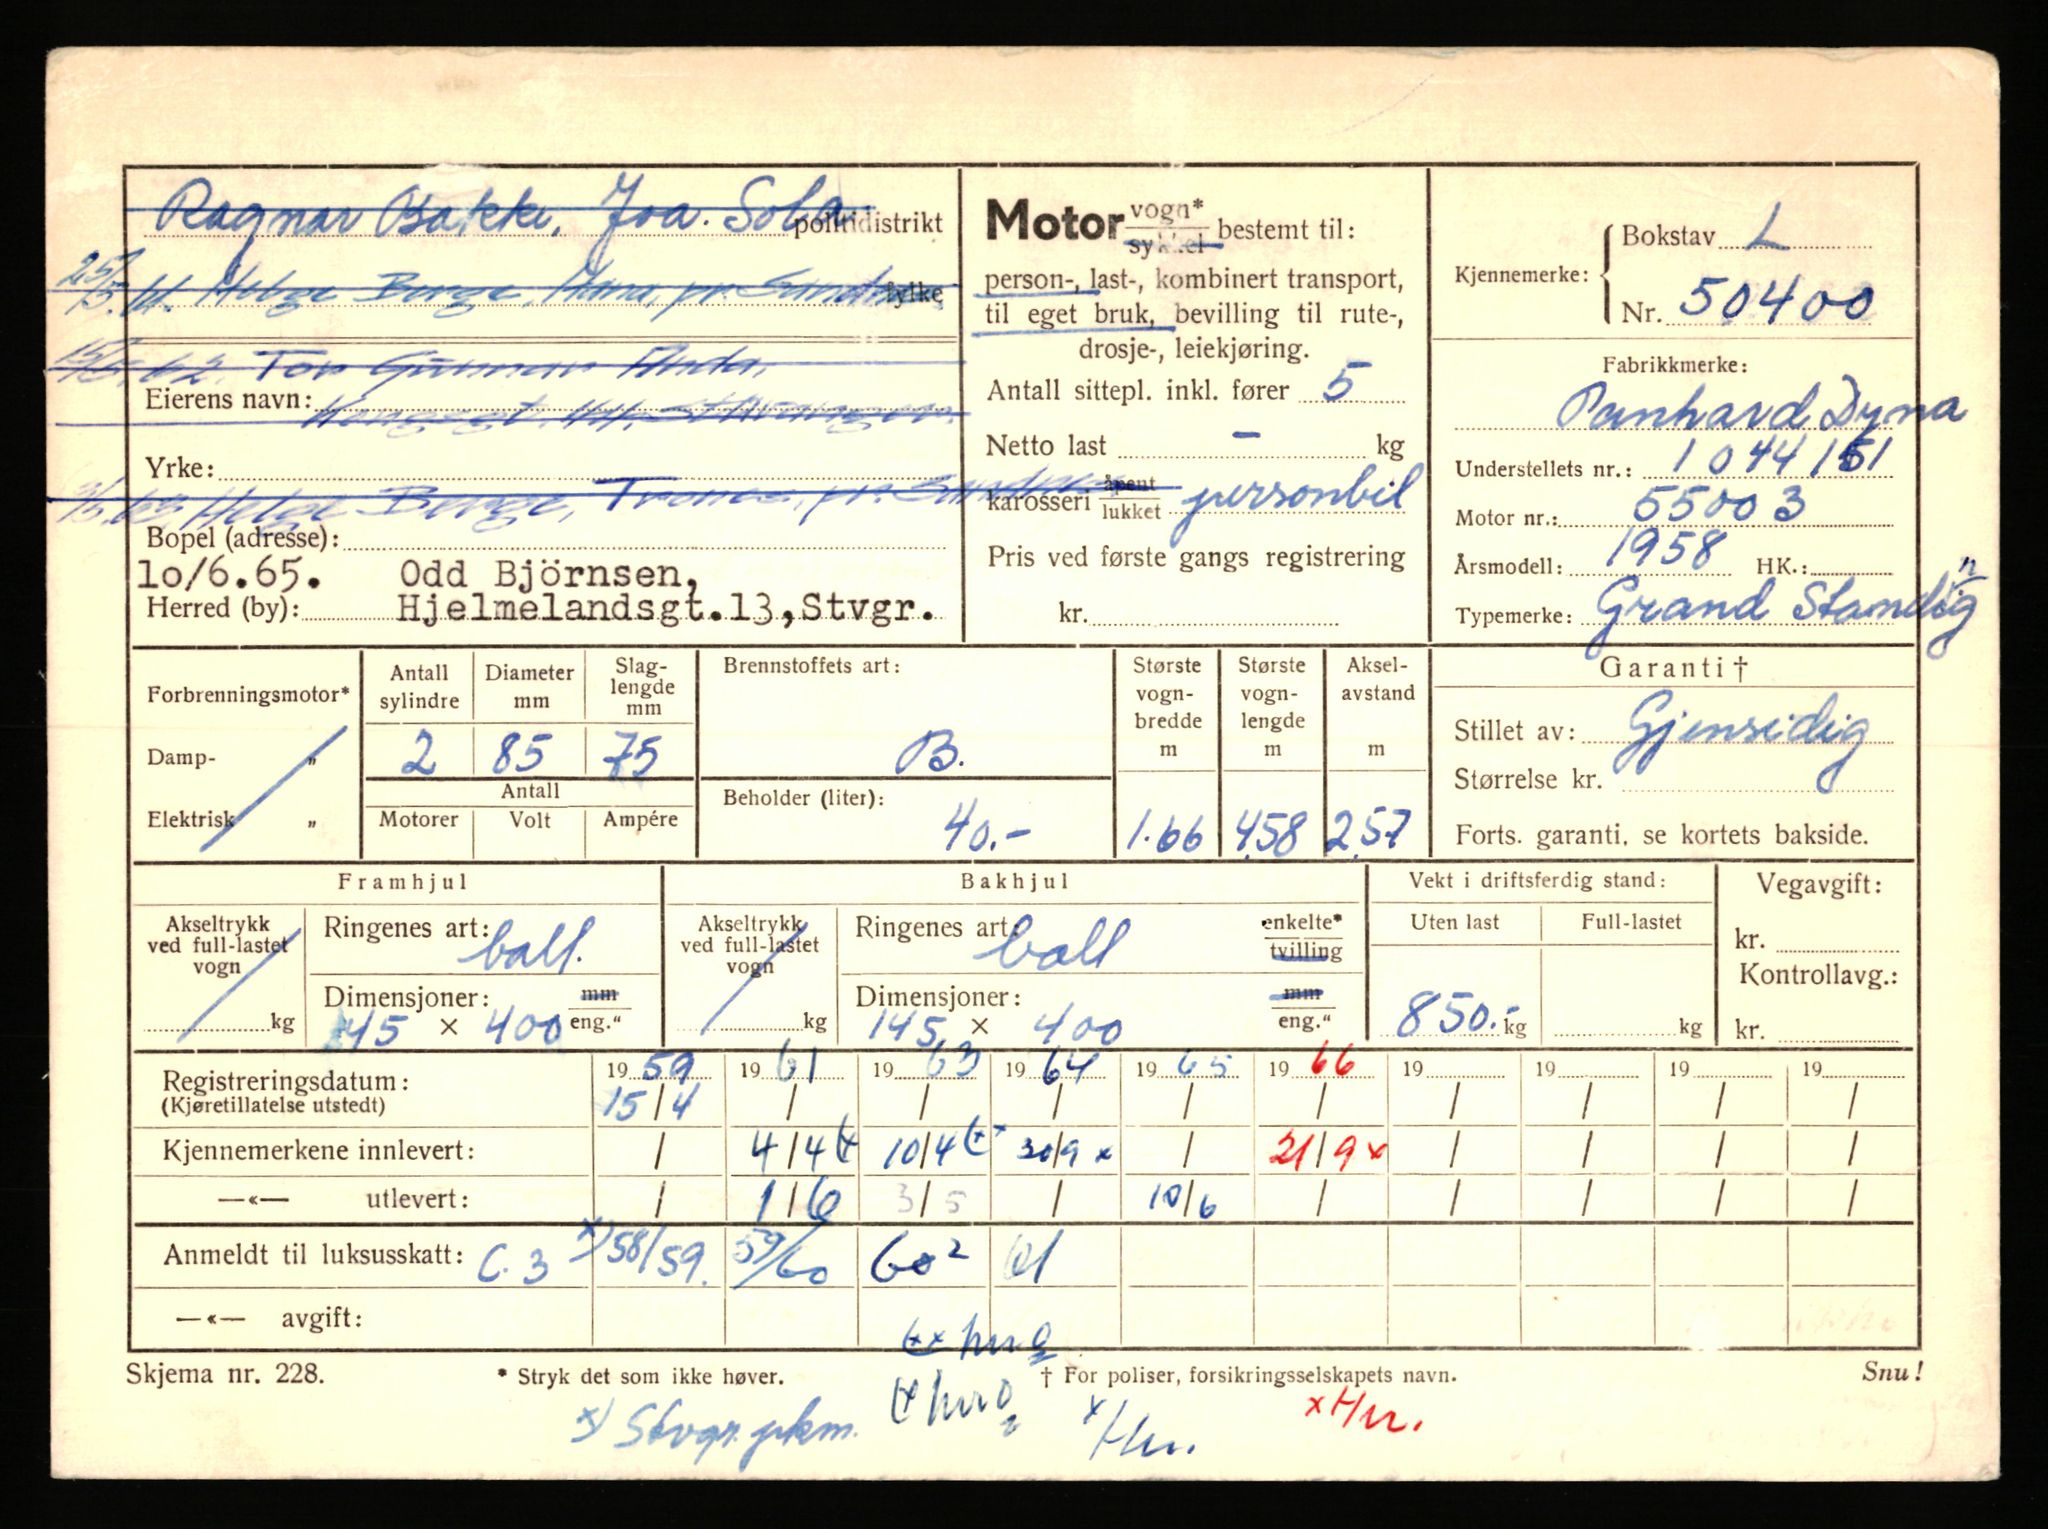 Ragnar Bakke, Joa. Sola politidistrikt
25/5.61. Helge Berge, Hana, pr. Sandnes fylke
15/6.62. Tor Gunnar Anda,
Eierens navn: Kongsgt. Stavanger.
Yrke:
3/5.63 Helge Berge, Trones, pr. Sandnes
Bopel (adresse):
10/6.65. Odd Björnsen,
Herred (by): Hjelmelandsgt.13,Stvgr.
Motor vogn* sykkel bestemt til:
person-, last-, kombinert transport,
til eget bruk, bevilling til rute-,
drosje-, leiekjøring.
Antall sittepl. inkl. fører 5
Netto last - kg
karosseri åpent lukket personbil
Pris ved første gangs registrering
kr.
Kjennemerke: Bokstav L
Nr. 50400
Fabrikkmerke:
Panhard Dyna
Understellets nr.: 1044151
Motor nr.: 55003
Årsmodell: 1958 HK.:
Typemerke: Grand Standing
Forbrenningsmotor*
Damp- „
Elektrisk „
Antall sylindre Diameter mm Slaglengde mm
2 85 75
Antall
Motorer Volt Ampére
Brennstoffets art:
B.
Beholder (liter):
40.-
Største vognbredde m Største vognlengde m Akselavstand m
1.66 4,58 2,57
Garanti †
Stillet av: Gjensidig
Størrelse kr.
Forts. garanti, se kortets bakside.
Framhjul
Akseltrykk ved full-lastet vogn kg
Ringenes art: ball.
Dimensjoner: mm eng."
145 × 400
Bakhjul
Akseltrykk ved full-lastet vogn kg
Ringenes art: ball enkelte* tvilling
Dimensjoner: mm eng."
145 × 400
Vekt i driftsferdig stand:
Uten last Full-lastet
850.- kg kg
Vegavgift:
kr.
Kontrollavg.:
kr.
Registreringsdatum: 1959 1961 1963 1964 1965 1966 19 19 19 19
(Kjøretillatelse utstedt) 15/4 / / / / / / / / /
Kjennemerkene innlevert: / 4/4 (x 10/4 (xx 30/9 x / 21/9 x / / / /
—«— utlevert: / 1/6 3/5 / 10/6 / / / / /
Anmeldt til luksusskatt: C.3 x) 58/59. 59/60 60² 61
—«— avgift:
(xx hno
Skjema nr. 228. * Stryk det som ikke høver. † For poliser, forsikringsselskapets navn. Snu!
x) Stvgr. (x hno x/Hn. xHn.